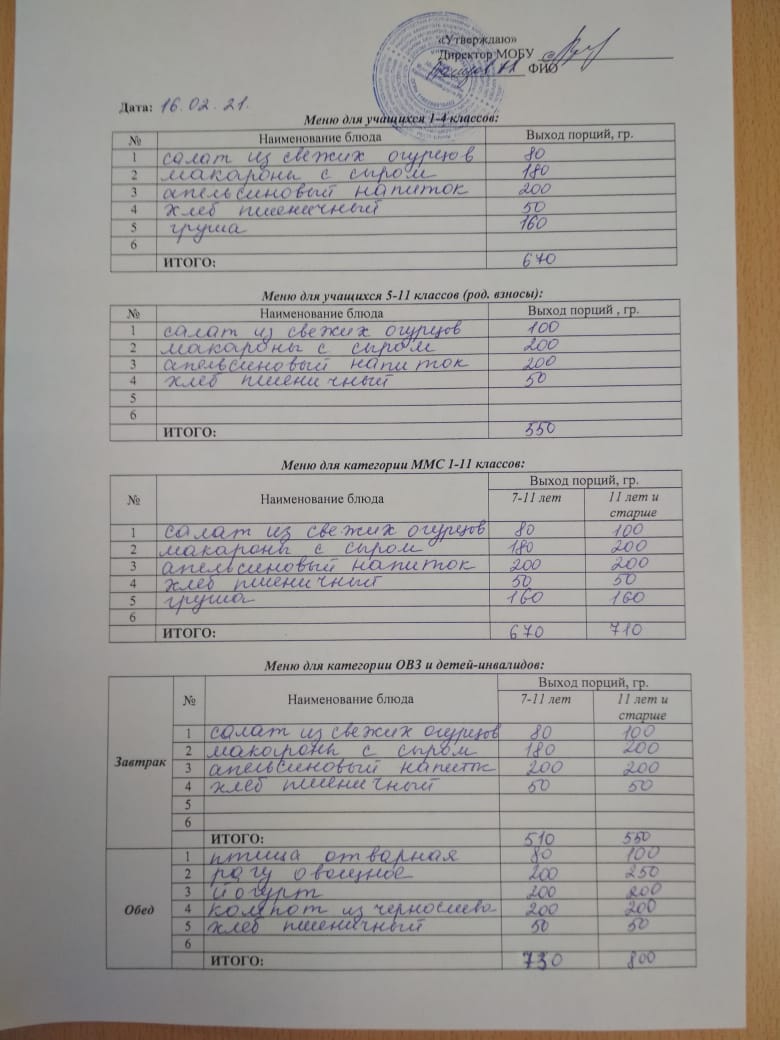 «Утверждаю»
Директор МОБУ
ФИО
Дата: 16.02.21.
Меню для учащихся 1-4 классов:
№ Наименование блюда Выход порций, гр.
1 салат из свежих огурцов 80
2 макароны с сыром 180
3 апельсиновый напиток 200
4 хлеб пшеничный 50
5 груша 160
6
ИТОГО: 670
Меню для учащихся 5-11 классов (род. взносы):
№ Наименование блюда Выход порций , гр.
1 салат из свежих огурцов 100
2 макароны с сыром 200
3 апельсиновый напиток 200
4 хлеб пшеничный 50
5
6
ИТОГО: 550
Меню для категории ММС 1-11 классов:
№ Наименование блюда Выход порций, гр.
7-11 лет 11 лет и
старше
1 салат из свежих огурцов 80 100
2 макароны с сыром 180 200
3 апельсиновый напиток 200 200
4 хлеб пшеничный 50 50
5 груша 160 160
6
ИТОГО: 670 710
Меню для категории ОВЗ и детей-инвалидов:
№ Наименование блюда Выход порций, гр.
7-11 лет 11 лет и
старше
Завтрак
1 салат из свежих огурцов 80 100
2 макароны с сыром 180 200
3 апельсиновый напиток 200 200
4 хлеб пшеничный 50 50
5
6
ИТОГО: 510 550
Обед
1 птица отварная 80 100
2 рагу овощное 200 250
3 йогурт 200 200
4 компот из чернослива 200 200
5 хлеб пшеничный 50 50
6
ИТОГО: 730 800